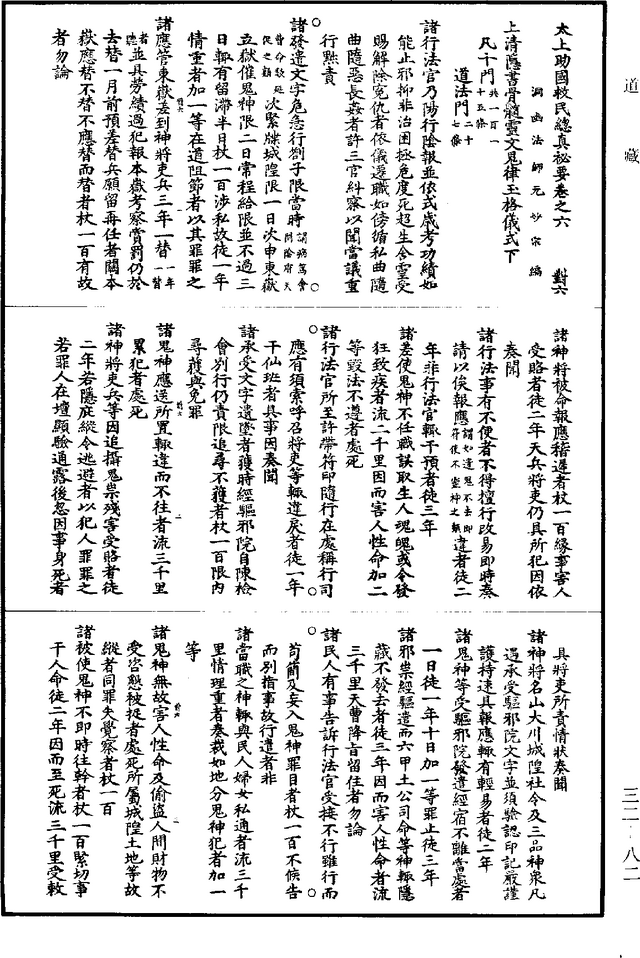 道藏
三二·八二
太上助國救民總真祕要卷之六 對六
洞幽法師元妙宗編
上清隱書骨髓靈文鬼律玉格儀式下
凡千門共一百一十五條
道法門二十七條
諸行法官乃陽行陰報並依式歲考功績如
能止邪抑非治困拯危度死超生舍靈受
賜解除冤仇者依儀遷職如傍循私曲隨
曲隨惡長姦者許三官糾察以聞當議重
行黜責
諸發遣文字危急行劄子限當時謂病篤會問陰府天曹命教延促之類
次緊牒城隍限一日次申東嶽
五獄催鬼神限二日常程給限並不過三
日輒有留滯半日杖一百涉私故徒一年
情重者加一等在道阻節者以其罪罪之
諸應管東嶽差到神將吏兵三年一替一年一替者聽
並具勞績過犯報本嶽考察賞罰仍於
去替一月前預差替兵願留再任者關本
嶽應替不替不應替而替者杖一百有故
者勿論
諸神將被命報應稽遲者杖一百緣事害人
受賂者徒二年天兵將吏仍具所犯因依
奏聞
諸行法事有不便者不得擅行改易即時奏
請以俟報應謂如遣鬼不去即符使不靈神之類
違者徒二
年非行法官輒干預者徒三年
諸差使鬼神不任職誤取生人魂魄或令發
狂致疾者流二千里因而害人性命加二
等毀法不遵者處死
諸行法官所至許帶符印隨行在處稱行司
應有須索呼召將吏等輒違戾者徒一年
干仙班者具事因奏聞
諸承受文字遺墜者獲時經驅邪院自陳檢
會別行仍責限追尋不獲者杖一百限內
尋獲與免罪
諸鬼神應送所置輒違而不往者流三千里
累犯者處死
諸神將吏兵等因追攝鬼祟殘害受賂者徒
二年若隱庇縱令逃避者以犯人罪罪之
若罪人在壇顯驗通露後忽因事身死者
具將吏所責情狀奏聞
諸神將名山大川城隍社令及三品神衆凡
遇承受驅邪院文字並須驗認印記嚴謹
護持速具報應輒有輕易者徒二年
諸鬼神等受驅邪院發遣經宿不離當處者
一日徒一年十日加一等罪止徒三年
諸邪祟經驅遣而六甲土公司命等神輒隱
藏不發去者徒三年因而害人性命者流
三千里天曹降旨留住者勿論
諸民人有事告訴行法官受接不行雖行而
苟簡及妄入鬼神罪目者杖一百不候告
而別指事故行遣者非
諸當職之神輒與民人婦女私通者流三千
里情理重者奏裁如地分鬼神犯者加一
等
諸鬼神無故害人性命及偷盜人間財物不
受咨懇被捉者處死所屬城隍土地等故
縱者同罪失覺察者杖一百
諸被使鬼神不即時往幹者杖一百緊切事
干人命徒二年因而至死流三千里受敕